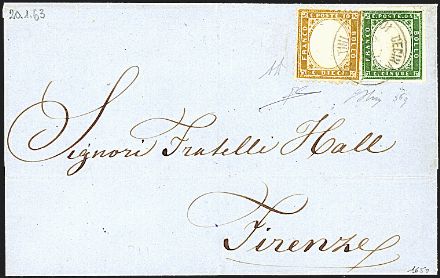 20.1.63
C. POSTE 10
FRANCO
BOLLO
C. DIECI
C. POSTE 05
FRANCO
BOLLO
C. CINQUE
Signori Fratelli Hall
Firenze